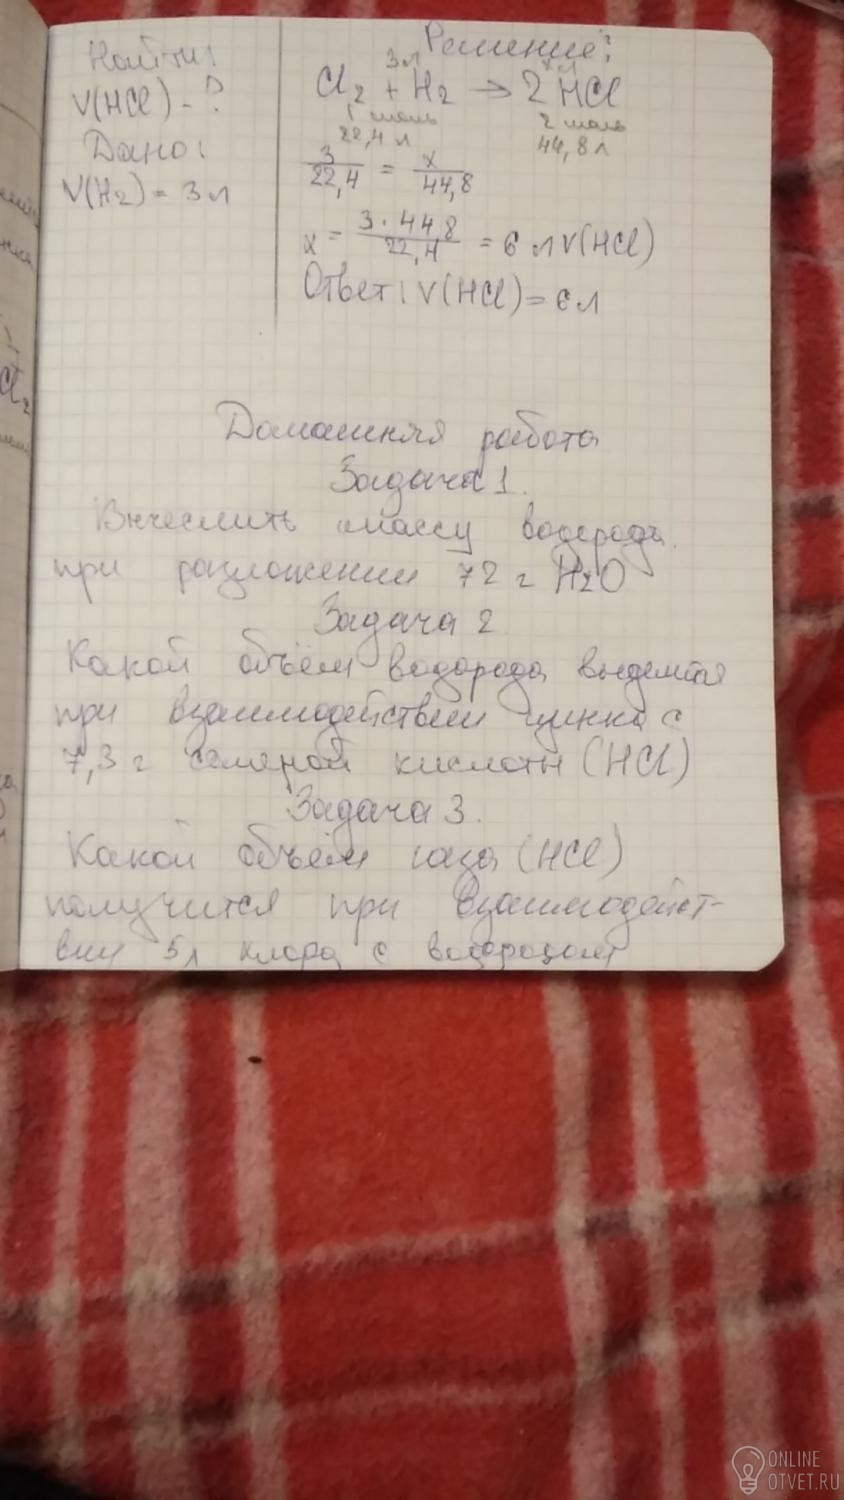 Найти:
V(HCl) - ?
Дано:
V(H2) = 3 л
Решение:
3 л x л
Cl2 + H2 → 2 HCl
1 моль 2 моль
22,4 л 44,8 л
3/22,4 = x/44,8
x = 3 · 44,8/22,4 = 6 л V(HCl)
Ответ: V(HCl) = 6 л
Домашняя работа
Задача 1.
Вычеслить массу водорода
при разложении 72 г H2O
Задача 2
Какой объём водорода выделится
при взаимодействии цинка с
7,3 г соляной кислоты (HCl)
Задача 3.
Какой объём газа (HCl)
получится при взаимодейст-
вии 5л хлора с водородом
ONLINE
OTVET.RU